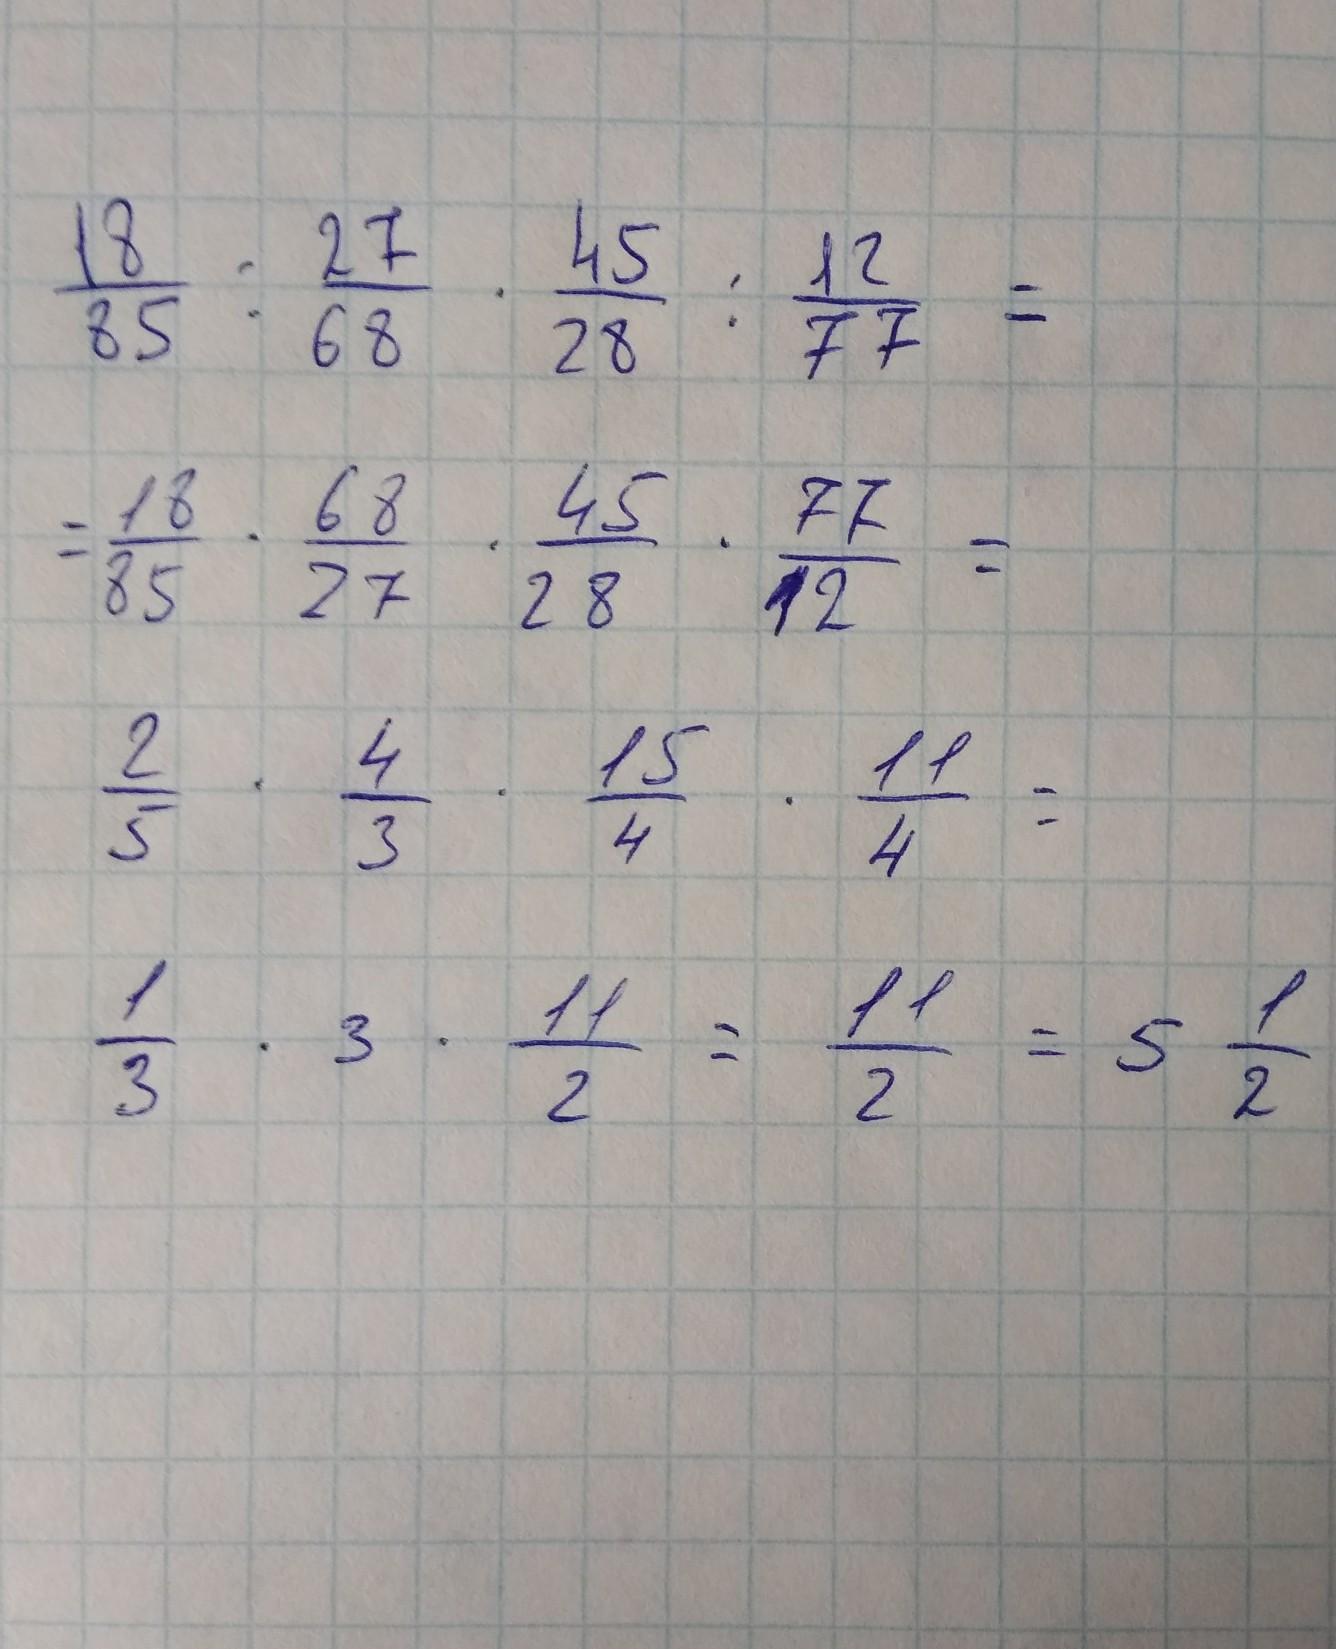 18/85 : 27/68 · 45/28 : 12/77 =
= 18/85 · 68/27 · 45/28 · 77/12 =
2/5 · 4/3 · 15/4 · 11/4 =
1/3 · 3 · 11/2 = 11/2 = 5 1/2